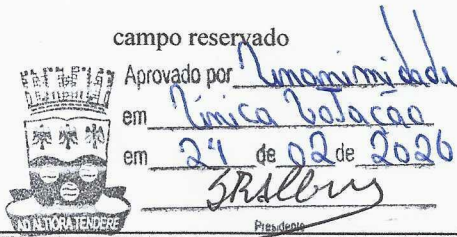 campo reservado
Aprovado por Unanimidade
em Única Votação
em 24 de 02 de 2026
Presidente
AD ALTIORA TENDERE